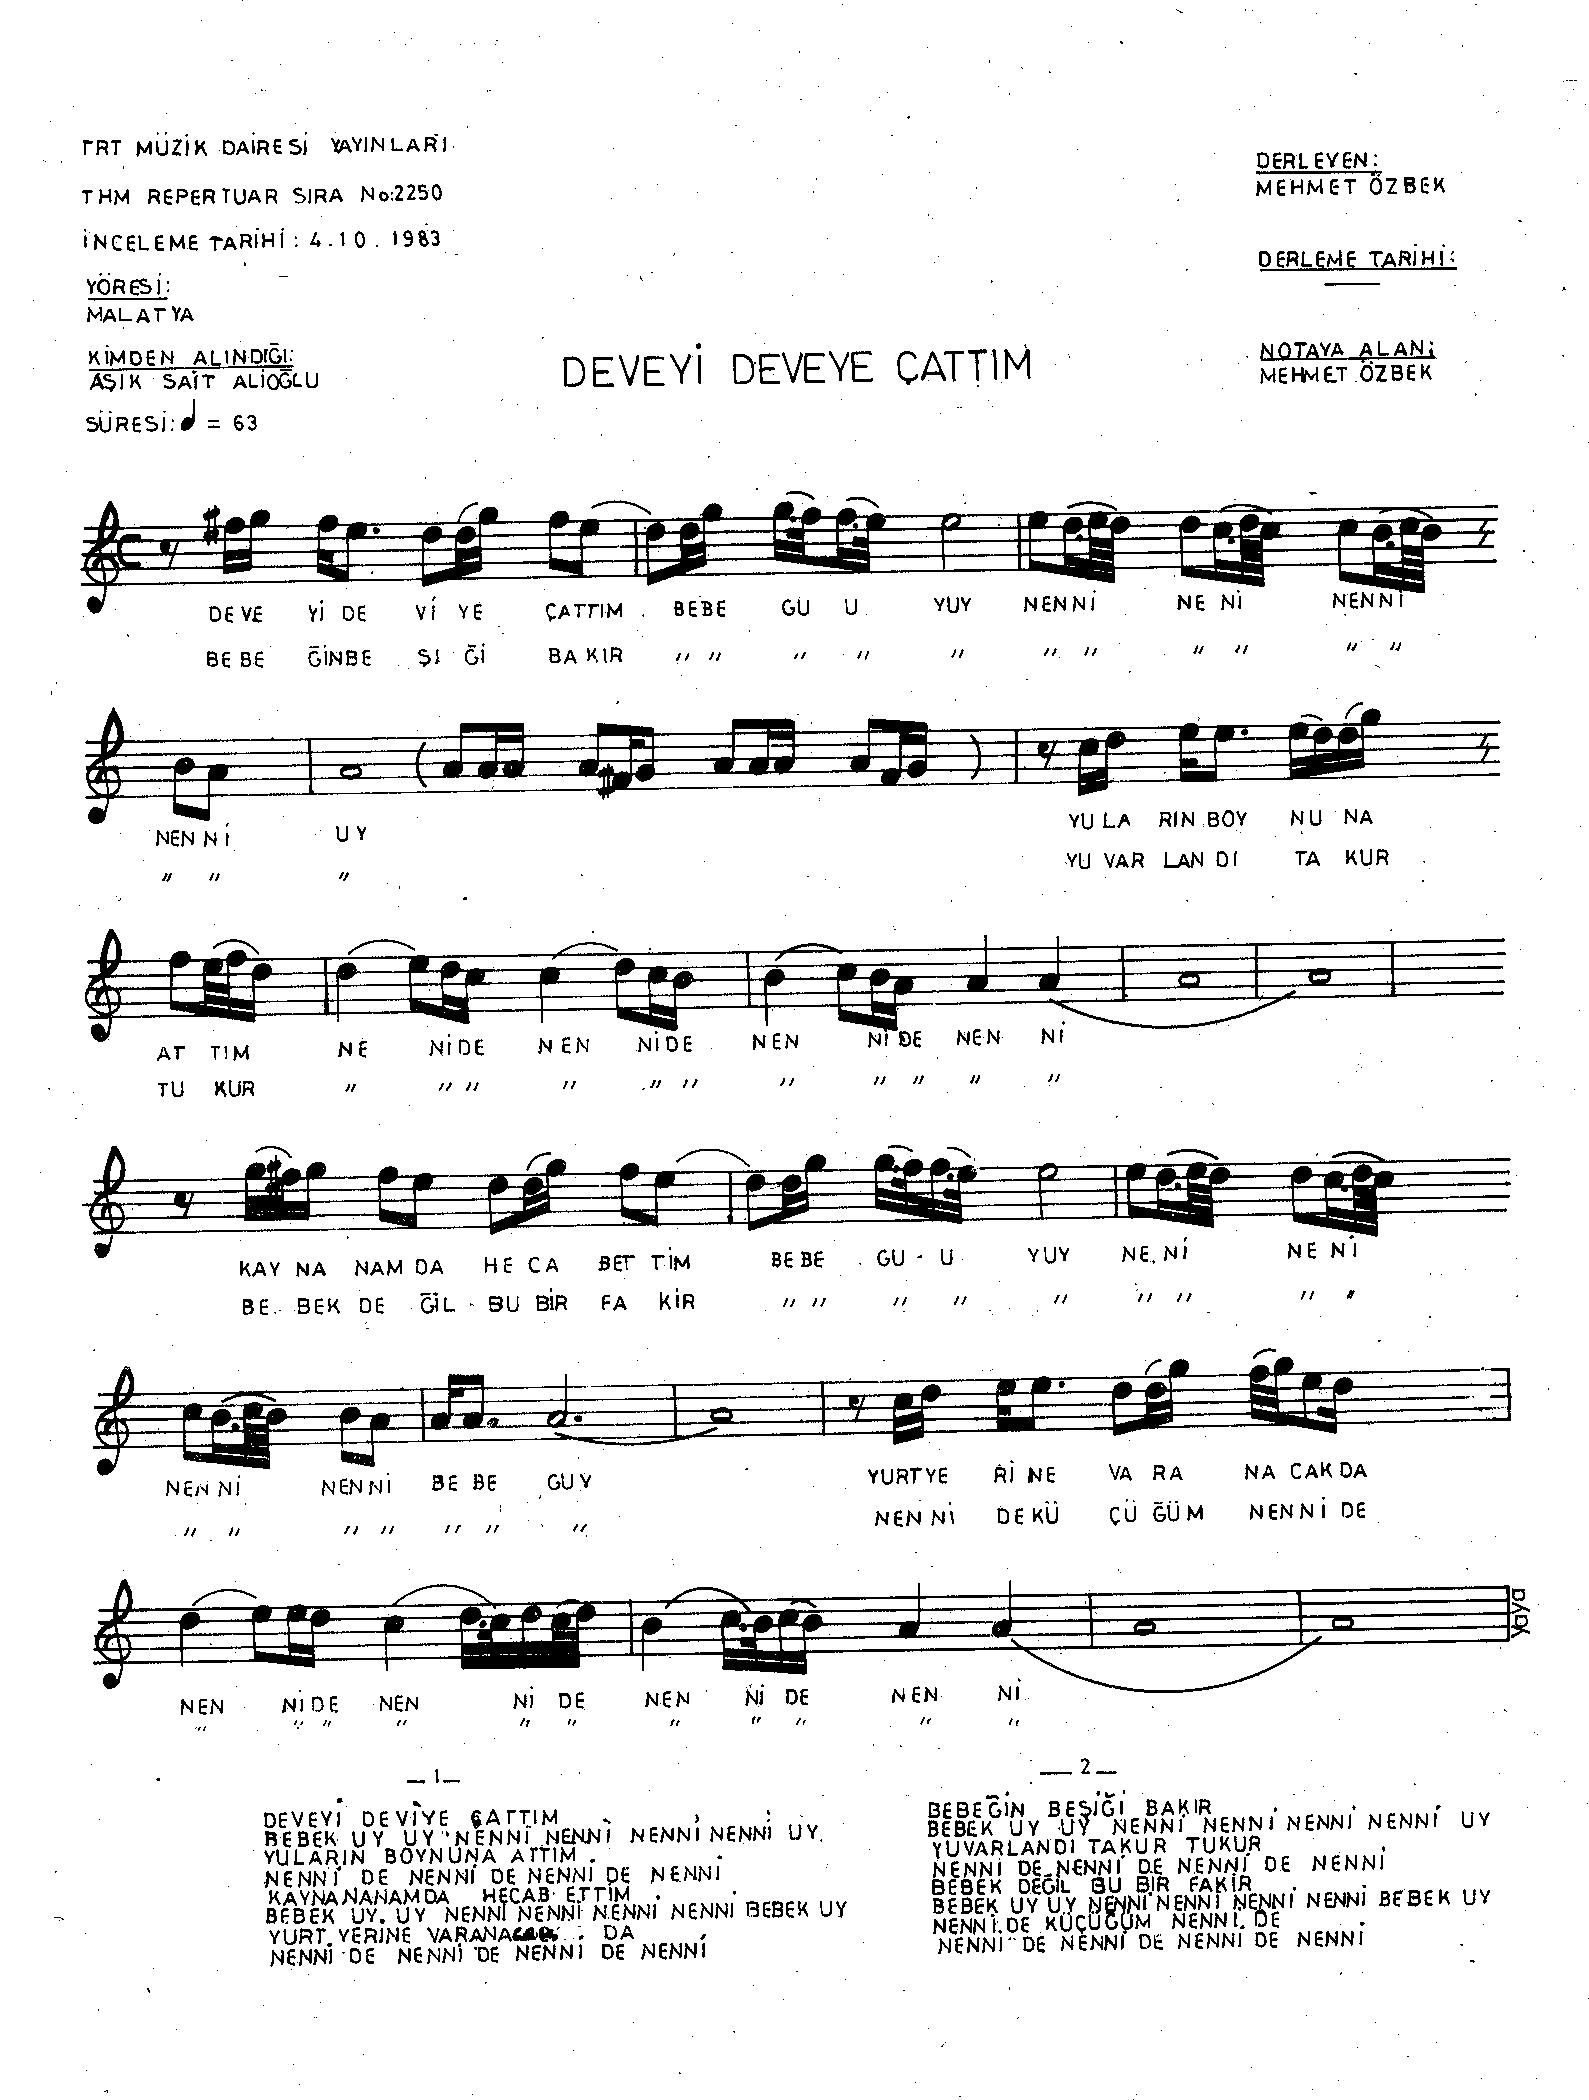 TRT MÜZİK DAİRESİ YAYINLARI
THM REPERTUAR SIRA No:2250
İNCELEME TARİHİ : 4.10.1983
YÖRESİ:
MALATYA
KİMDEN ALINDIĞI:
AŞIK SAİT ALİOĞLU
SÜRESİ: ♩ = 63
DERLEYEN:
MEHMET ÖZBEK
DERLEME TARİHİ:
NOTAYA ALAN:
MEHMET ÖZBEK
DEVEYİ DEVEYE ÇATTIM
DEVE Yİ DE Vİ YE ÇATTIM BEBE GU U YUY NENNİ NE Nİ NENNİ
BEBE ĞİNBE Şİ Ğİ BA KIR " " " " " " " " " " "
NEN Nİ UY YU LA RIN BOY NU NA
" " " YU VAR LAN DI TA KUR
AT TIM NE NİDE NEN NİDE NEN Nİ DE NEN Nİ
TU KUR " " " " " " " " " " "
KAY NA NAM DA HE CA BET TİM BEBE GU - U YUY NE.Nİ NE Nİ
BE. BEK DE ĞİL - BU BİR FA KİR " " " " " " " " "
NEN Nİ NEN Nİ BE BE GUY YURTYE Rİ NE VA RA NA CAK DA
" " " " " " " NEN Nİ DE KÜ ÇÜ ĞÜM NEN Nİ DE
NEN NİDE NEN Nİ DE NEN Nİ DE NEN Nİ
" " " " " " " " " " "
aya
_ 1 _
DEVEYİ DEVİYE ÇATTIM
BEBEK UY UY NENNİ NENNİ NENNİ NENNİ UY
YULARIN BOYNUNA ATTIM
NENNİ DE NENNİ DE NENNİ DE NENNİ
KAYNANAMDA HECAB ETTİM
BEBEK UY UY NENNİ NENNİ NENNİ NENNİ BEBEK UY
YURT YERİNE DA
NENNİ DE NENNİ DE NENNİ DE NENNİ
_ 2 _
BEBEĞİN BEŞİĞİ BAKIR
BEBEK UY UY NENNİ NENNİ NENNİ NENNİ UY
YUVARLANDI TAKUR TUKUR
NENNİ DE NENNİ DE NENNİ DE NENNİ
BEBEK DEĞİL BU BİR FAKİR
BEBEK UY UY NENNİ NENNİ NENNİ NENNİ BEBEK UY
NENNİ DE KÜÇÜĞÜM NENNİ DE
NENNİ DE NENNİ DE NENNİ DE NENNİ